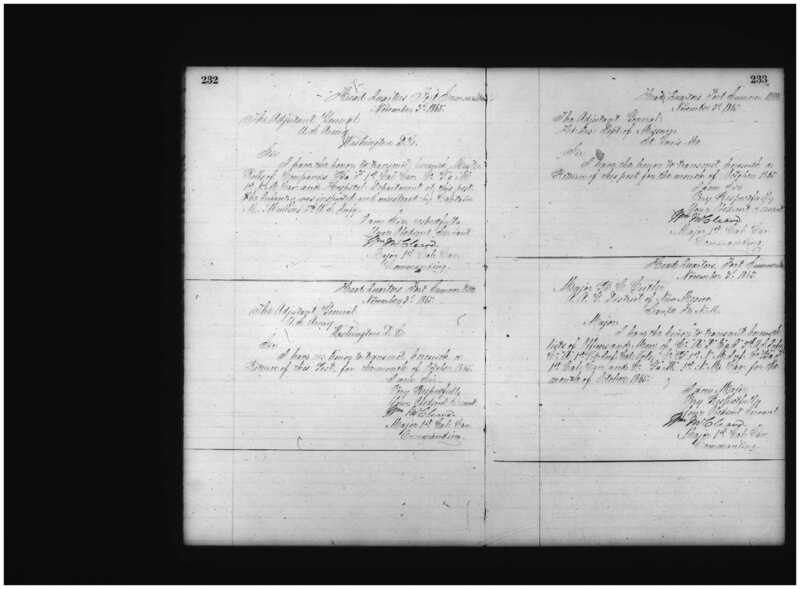 232
Head Quarters Fort Sumner N.M.
November 3d 1865.
The Adjutant General
U.S. Army
Washington D.C.
Sir
I have the honor to transmit Muster
Rolls of Companies 1st Cal. Cav.
1st Cav. and Hospital Department at this post.
The was inspected and mustered by Captain
U.S. Infy.
I am Sir respectfully
Your Obedient Servant
Wm McCleave
Major 1st Cal. Cav.
Commanding.
Head Quarters Fort Sumner N.M.
November 3d 1865.
The Adjutant General
U.S. Army
Washington D.C.
Sir
I have the honor to transmit herewith a
Return of this Post, for the month of October 1865.
I am Sir
Very Respectfully
Your Obedient Servant
Wm McCleave
Major 1st Cal. Cav.
Commanding.
233
Head Quarters Fort Sumner N.M.
November 3d 1865.
The Adjutant General
Dept. of Missouri
St. Louis Mo.
Sir
I have the honor to transmit herewith a
Return of this post for the month of October 1865
I am Sir
Very Respectfully
Your Obedient Servant
Wm McCleave
Major 1st Cal. Cav.
Commanding
Head Quarters, Fort Sumner N.M.
November 3d 1865.
Major Cutler
A.A.G. District of New Mexico
Santa Fe N.M.
Major
I have the honor to transmit herewith
lists of Officers and Men of Co.
1st N.M.
1st Cal. Cav. and 1st N.M. Cav. for the
month of October 1865.
I am Major
Very Respectfully
Your Obedient Servant
Wm McCleave
Major 1st Cal. Cav.
Commanding.